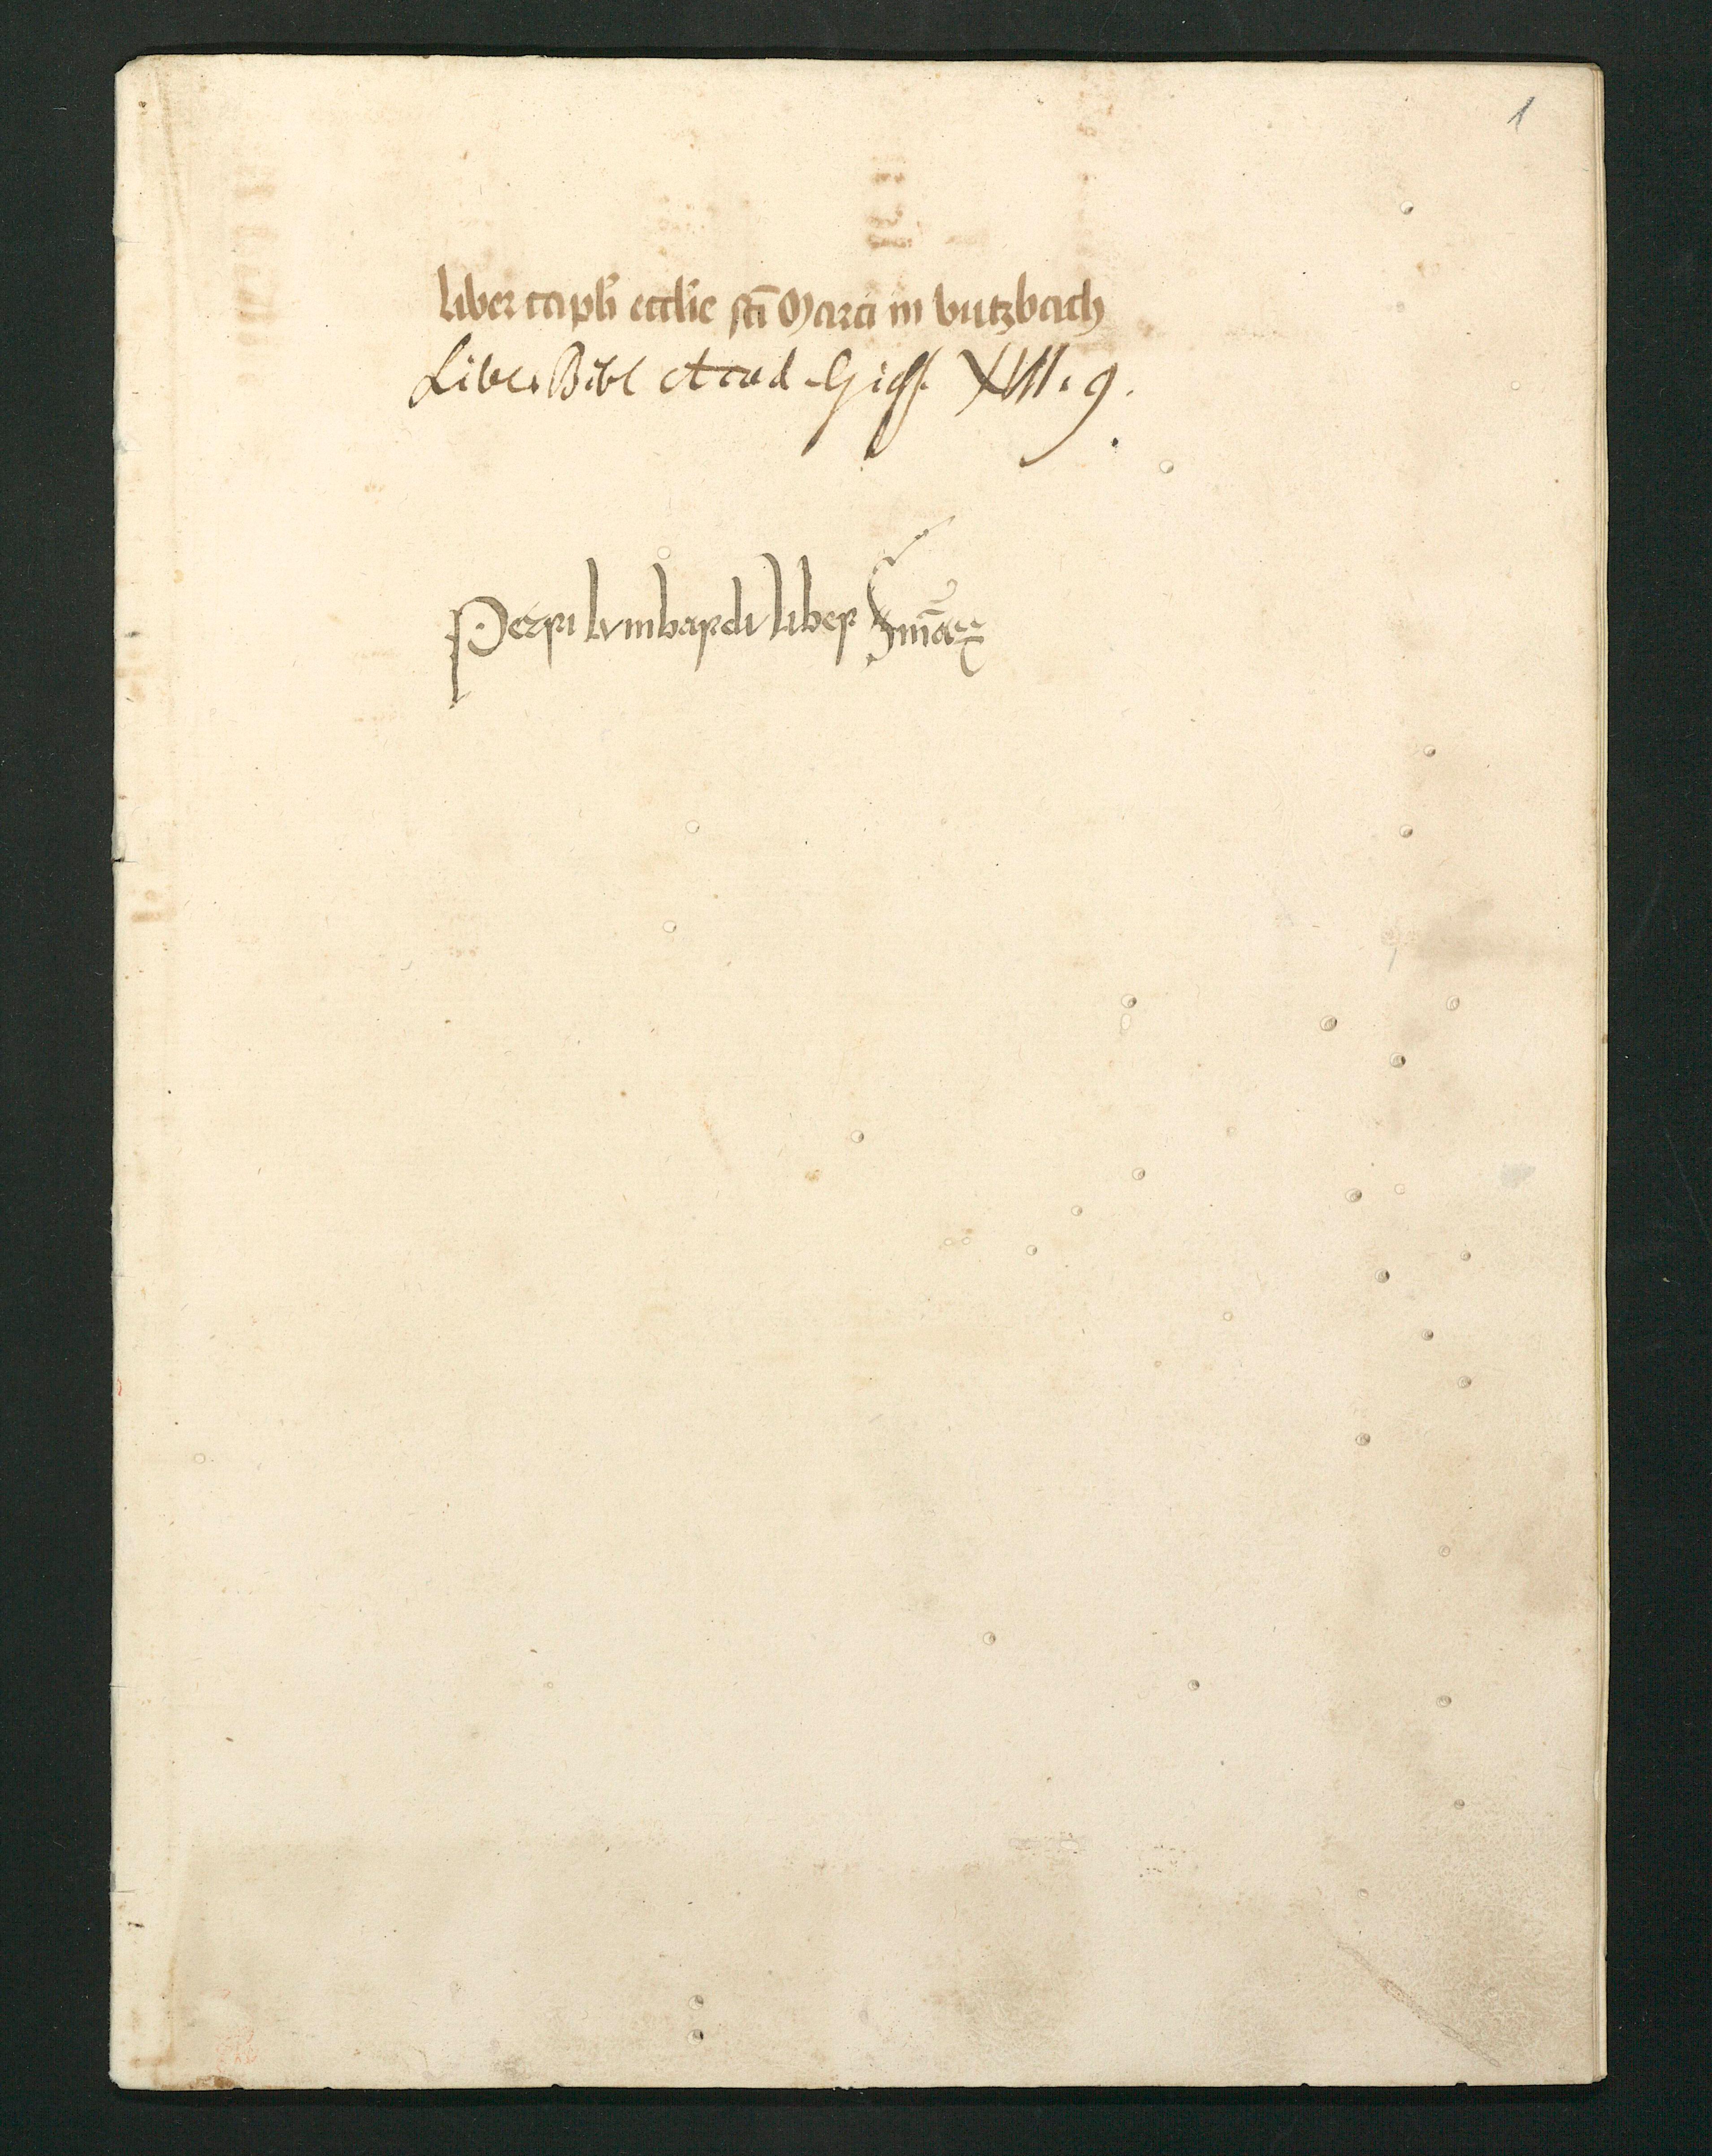 1
liber capli ecclie sci Marci in butzbach
Liber Bibl Acad. Giess. XVII. 9.
Petri lvmbardi liber Smarx